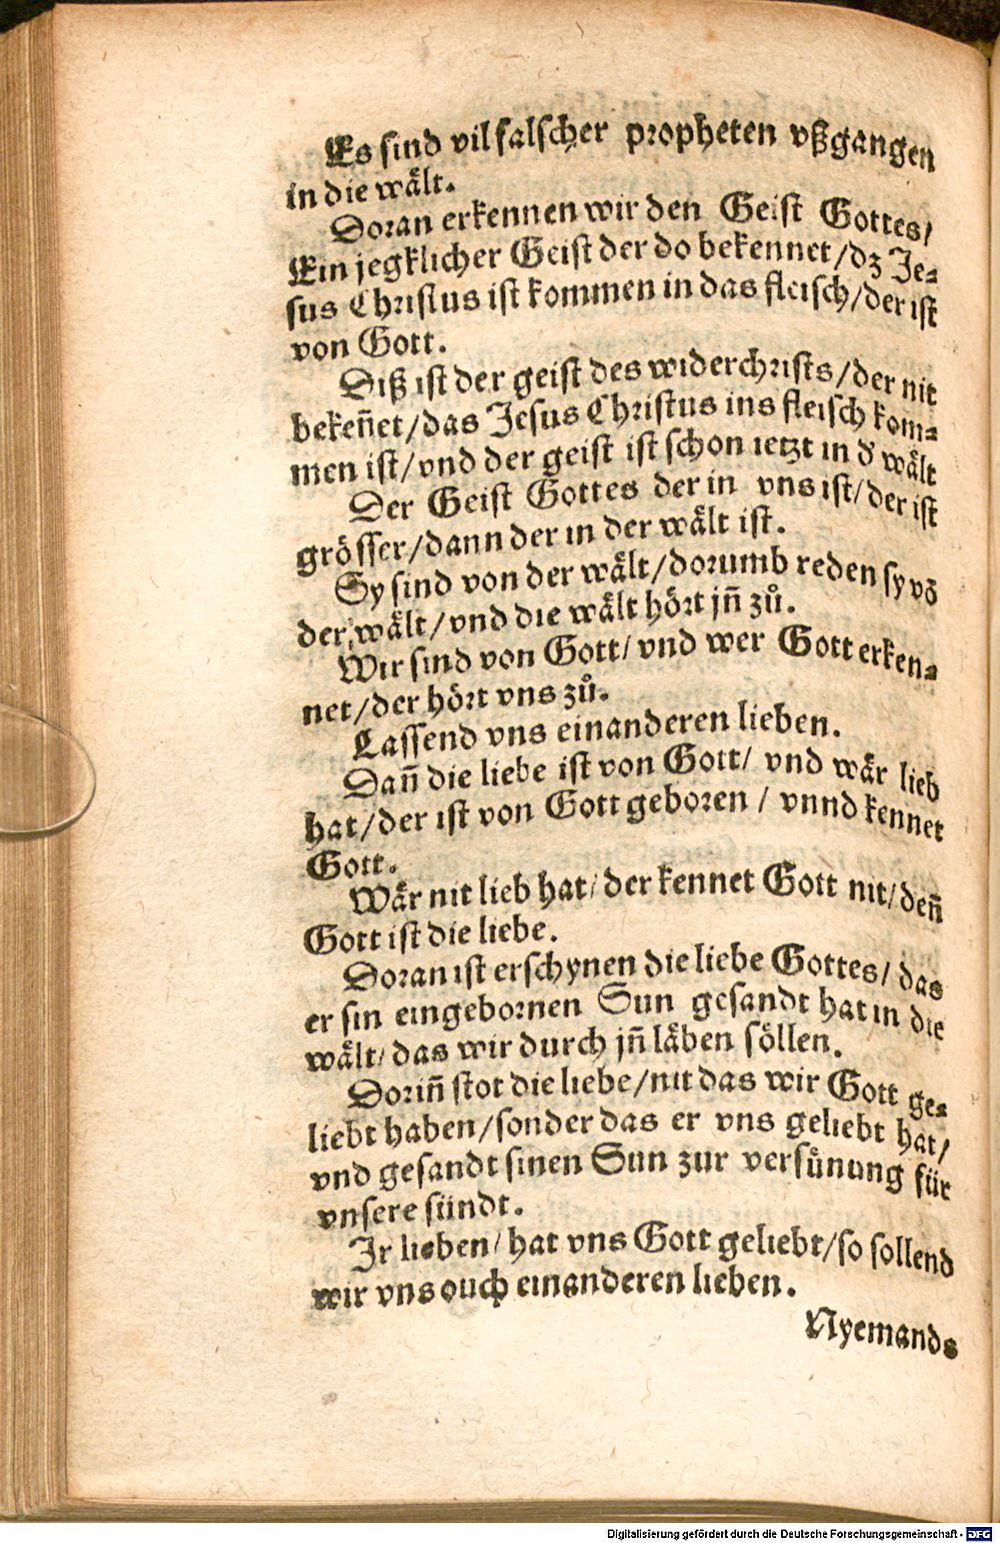 Es sind vil falscher propheten vßgangen
in die wält.
Doran erkennen wir den Geist Gottes/
Ein jegklicher Geist der do bekennet/dz Je⸗
sus Christus ist kommen in das fleisch/der ist
von Gott.
Diß ist der geist des widerchrists/der nit
bekeñet/das Jesus Christus ins fleisch kom⸗
men ist/vnd der geist ist schon ietzt in d̕ wält
Der Geist Gottes der in vns ist/der ist
grösser/dann der in der wält ist.
Sy sind von der wält/dorumb reden sy võ
der wält/vnd die wält hört jñ zů.
Wir sind von Gott/ vnd wer Gott erken⸗
net/der hört vns zů.
Lassend vns einanderen lieben.
Dañ die liebe ist von Gott/ vnd wär lieb
hat/der ist von Gott geboren / vnnd kennet
Gott.
Wär nit lieb hat/ der kennet Gott nit/deñ
Gott ist die liebe.
Doran ist erschynen die liebe Gottes/ das
er sin eingebornen Sun gesandt hat in die
wält/ das wir durch jñ läben söllen.
Doriñ stot die liebe/nit das wir Gott ge⸗
liebt haben/sonder das er vns geliebt hat/
vnd gesandt sinen Sun zur versůnung für
vnsere sündt.
Jr lieben/ hat vns Gott geliebt/so sollend
wir vns ouch einanderen lieben.
Nyemands
Digitalisierung gefördert durch die Deutsche Forschungsgemeinschaft - DFG